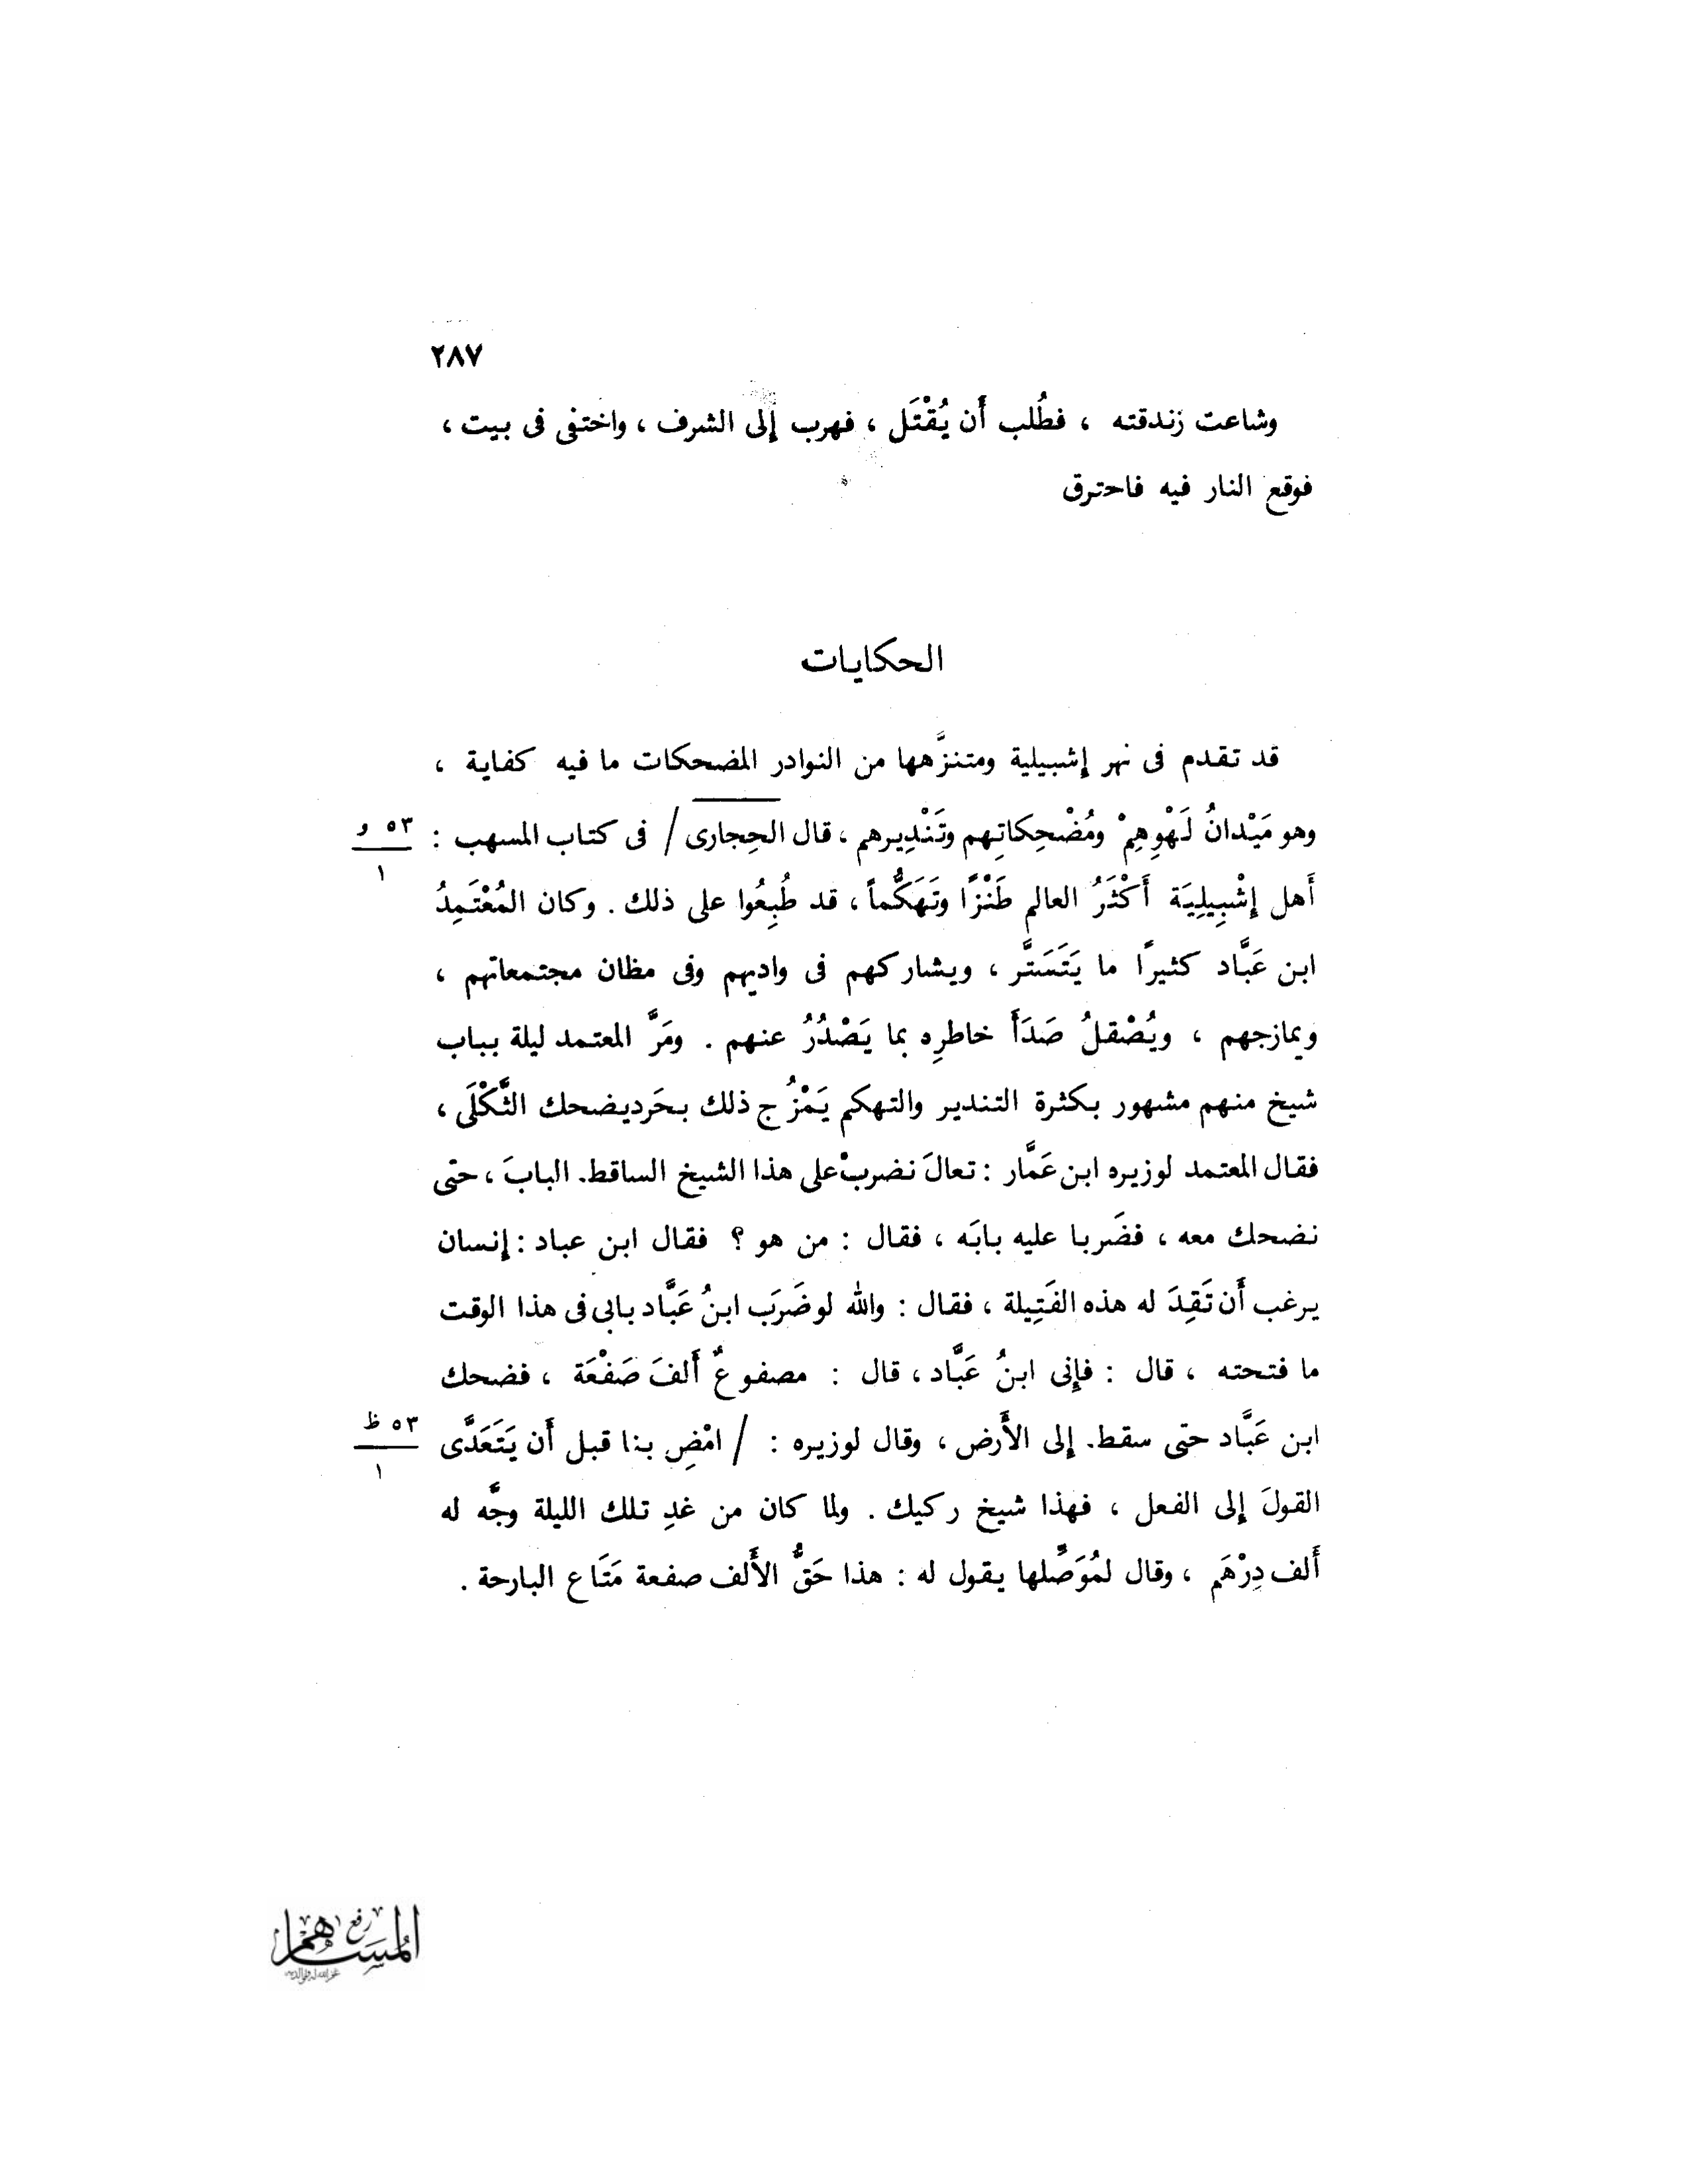 ٢٨٧
وشاعت زندقته ، فطُلب أَن يُقْتَل ، فهرب إلى الشرف ، واختفى فى بيت ،
فوقع النار فيه فاحترق
الحكايات
قد تقدم فى نهر إشبيلية ومتنزَّهها من النوادر المضحكات ما فيه كفاية ،
وهو مَيْدانُ لَهْوِهِمْ ومُضْحِكاتِهم وتَنْدِيرهم ، قال الحِجارى / فى كتاب المسهب : ٥٣ و
١
أَهل إِشْبِيلِيَة أَكْثَرُ العالم طَنْزًا وتَهَكُّماً ، قد طُبِعُوا على ذلك . وكان المُعْتَمِدُ
ابن عَبَّاد كثيرًا ما يَتَسَتَّر ، ويشاركهم فى واديهم وفى مظان مجتمعاتهم ،
ويمازجهم ، ويُصْقلُ صَدَأَ خاطرِه بما يَصْدُرُ عنهم . ومَرَّ المعتمد ليلة بباب
شيخ منهم مشهور بكثرة التندير والتهكم يَمْزُج ذلك بحَرديضحك الثَّكْلَى ،
فقال المعتمد لوزيره ابن عَمَّار : تعالَ نضربْ على هذا الشيخ الساقط. البابَ ، حتى
نضحك معه ، فضَربا عليه بابَه ، فقال : من هو ؟ فقال ابن عباد : إنسان
يرغب أَن تَقِدَ له هذه الفَتِيلة ، فقال : والله لو ضَرَب ابنُ عَبَّاد بابى فى هذا الوقت
ما فتحته ، قال : فإنى ابنُ عَبَّاد ، قال : مصفوعٌ أَلفَ صَفْعَة ، فضحك
ابن عَبَّاد حتى سقط. إلى الأَرض ، وقال لوزيره : / امْضِ بنا قبل أَن يَتَعَدَّى ٥٣ ظ
١
القولَ إلى الفعل ، فهذا شيخ ركيك . ولما كان من غدِ تلك الليلة وجَّه له
أَلف دِرْهَم ، وقال لمُوَصِّلها يقول له : هذا حَقُّ الأَلف صفعة مَتَاع البارحة .
رفع
المساهم
غفر الله له ولوالديه